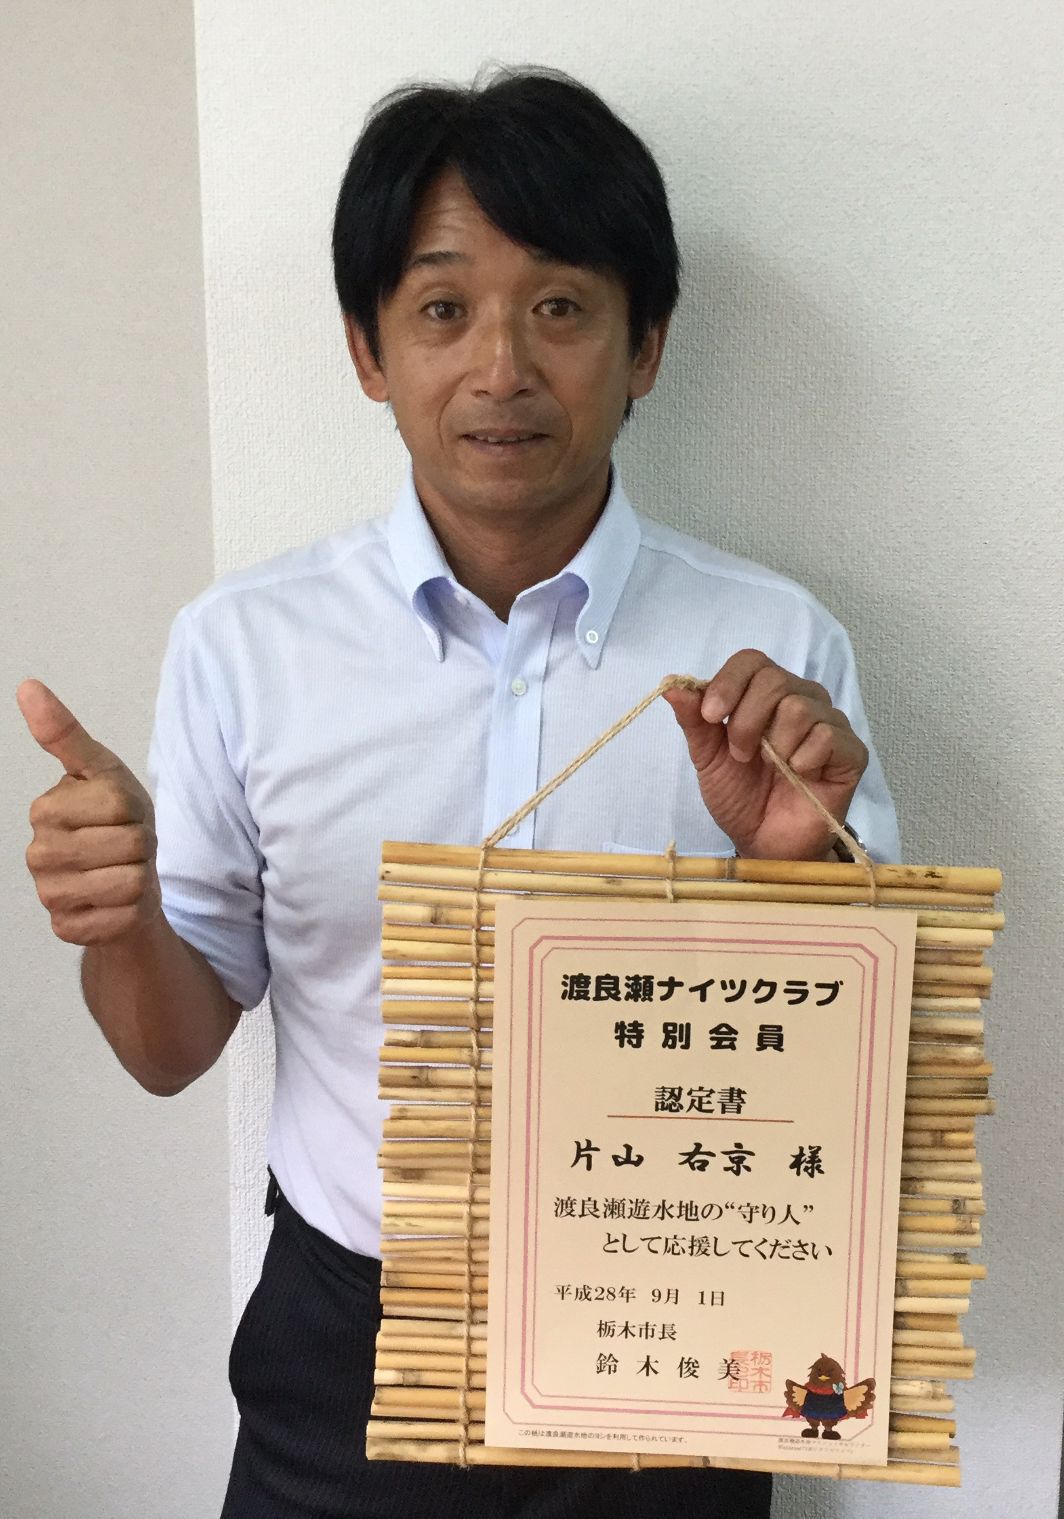 渡良瀬ナイツクラブ
特別会員
認定書
片山 右京 様
渡良瀬遊水地の“守り人”
として応援してください
平成28年 9月 1日
栃木市長
鈴木俊美
栃木市
長之印
この紙は渡良瀬遊水地のヨシを利用して作られています。